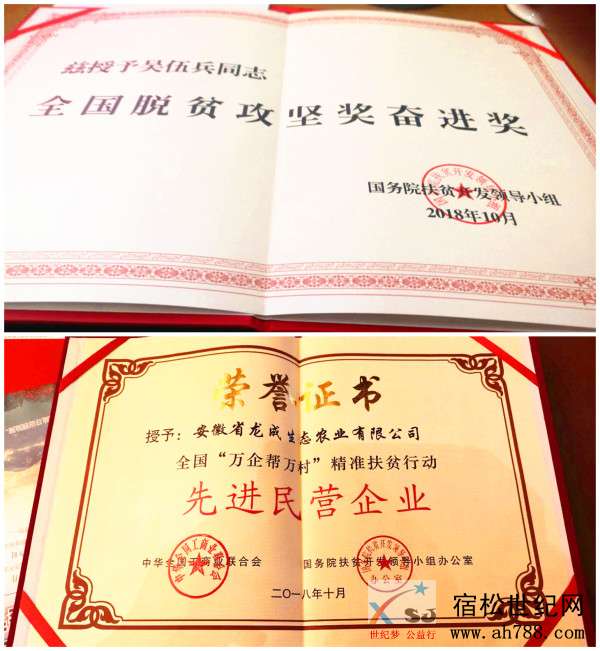 兹授予吴伍兵同志
全国脱贫攻坚奖奋进奖
国务院扶贫开发领导小组
2018年10月
荣誉证书
授予：安徽省龙成生态农业有限公司
全国“万企帮万村”精准扶贫行动
先进民营企业
中华全国工商业联合会 国务院扶贫开发领导小组办公室
办公室
二〇一八年十月
SJ
世纪梦 公益行
宿松世纪网
www.ah788.com